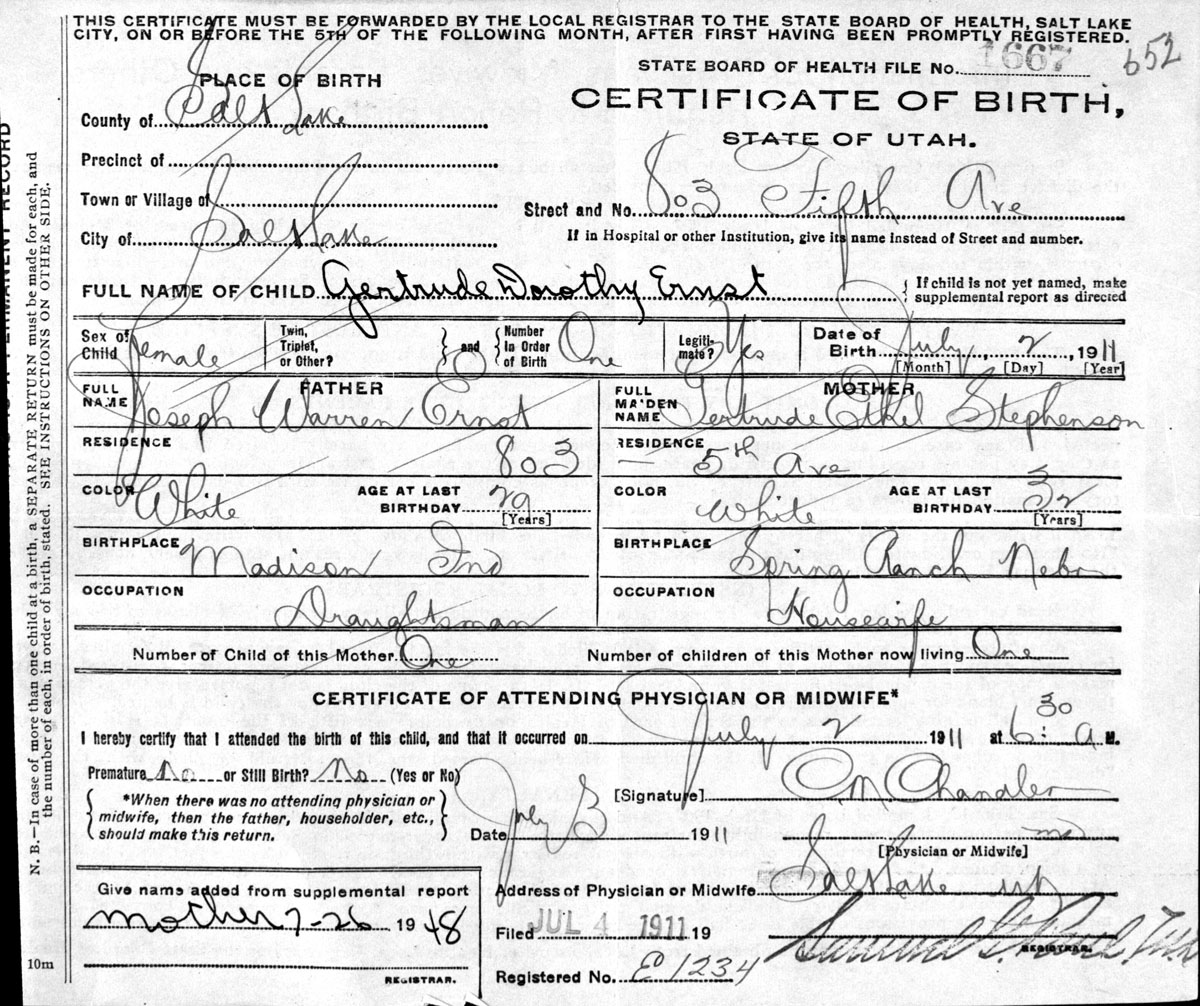 THIS CERTIFICATE MUST BE FORWARDED BY THE LOCAL REGISTRAR TO THE STATE BOARD OF HEALTH, SALT LAKE
CITY, ON OR BEFORE THE 5TH OF THE FOLLOWING MONTH, AFTER FIRST HAVING BEEN PROMPTLY REGISTERED.
652
STATE BOARD OF HEALTH FILE No. 1667
PLACE OF BIRTH
CERTIFICATE OF BIRTH,
STATE OF UTAH.
County of Salt Lake
Precinct of
Town or Village of
Street and No. 803 Fifth Ave
City of Salt Lake
If in Hospital or other Institution, give its name instead of Street and number.
FULL NAME OF CHILD Gertrude Dorothy Ernst
If child is not yet named, make
supplemental report as directed
Sex of Child Female
Twin, Triplet, or Other?
and
Number In Order of Birth One
Legiti-mate? Yes
Date of Birth July 2, 1911
[Month] [Day] [Year]
FATHER
FULL NAME Joseph Warren Ernst
MOTHER
FULL MAIDEN NAME Gertrude Ethel Stephenson
RESIDENCE 803
RESIDENCE — 5th Ave
COLOR White
AGE AT LAST BIRTHDAY 29
[Years]
COLOR White
AGE AT LAST BIRTHDAY 32
[Years]
BIRTHPLACE Madison Ind
BIRTHPLACE Spring Ranch Nebr
OCCUPATION Draughtsman
OCCUPATION Housewife
Number of Child of this Mother One
Number of children of this Mother now living One
CERTIFICATE OF ATTENDING PHYSICIAN OR MIDWIFE*
I hereby certify that I attended the birth of this child, and that it occurred on July 2 1911 at 6:30 A M.
Premature No or Still Birth? No (Yes or No)
*When there was no attending physician or
midwife, then the father, householder, etc.,
should make this return.
[Signature] C. M. Chandler
Date July 3 1911
MD
[Physician or Midwife]
Address of Physician or Midwife Salt Lake Ut
Give name added from supplemental report
mother 7-26 1948
REGISTRAR.
Filed JUL 4 1911 19
REGISTRAR.
Registered No. E1234
10m
N. B.—In case of more than one child at a birth, a SEPARATE RETURN must be made for each, and
the number of each, in order of birth, stated. SEE INSTRUCTIONS ON OTHER SIDE.
PERMANENT RECORD